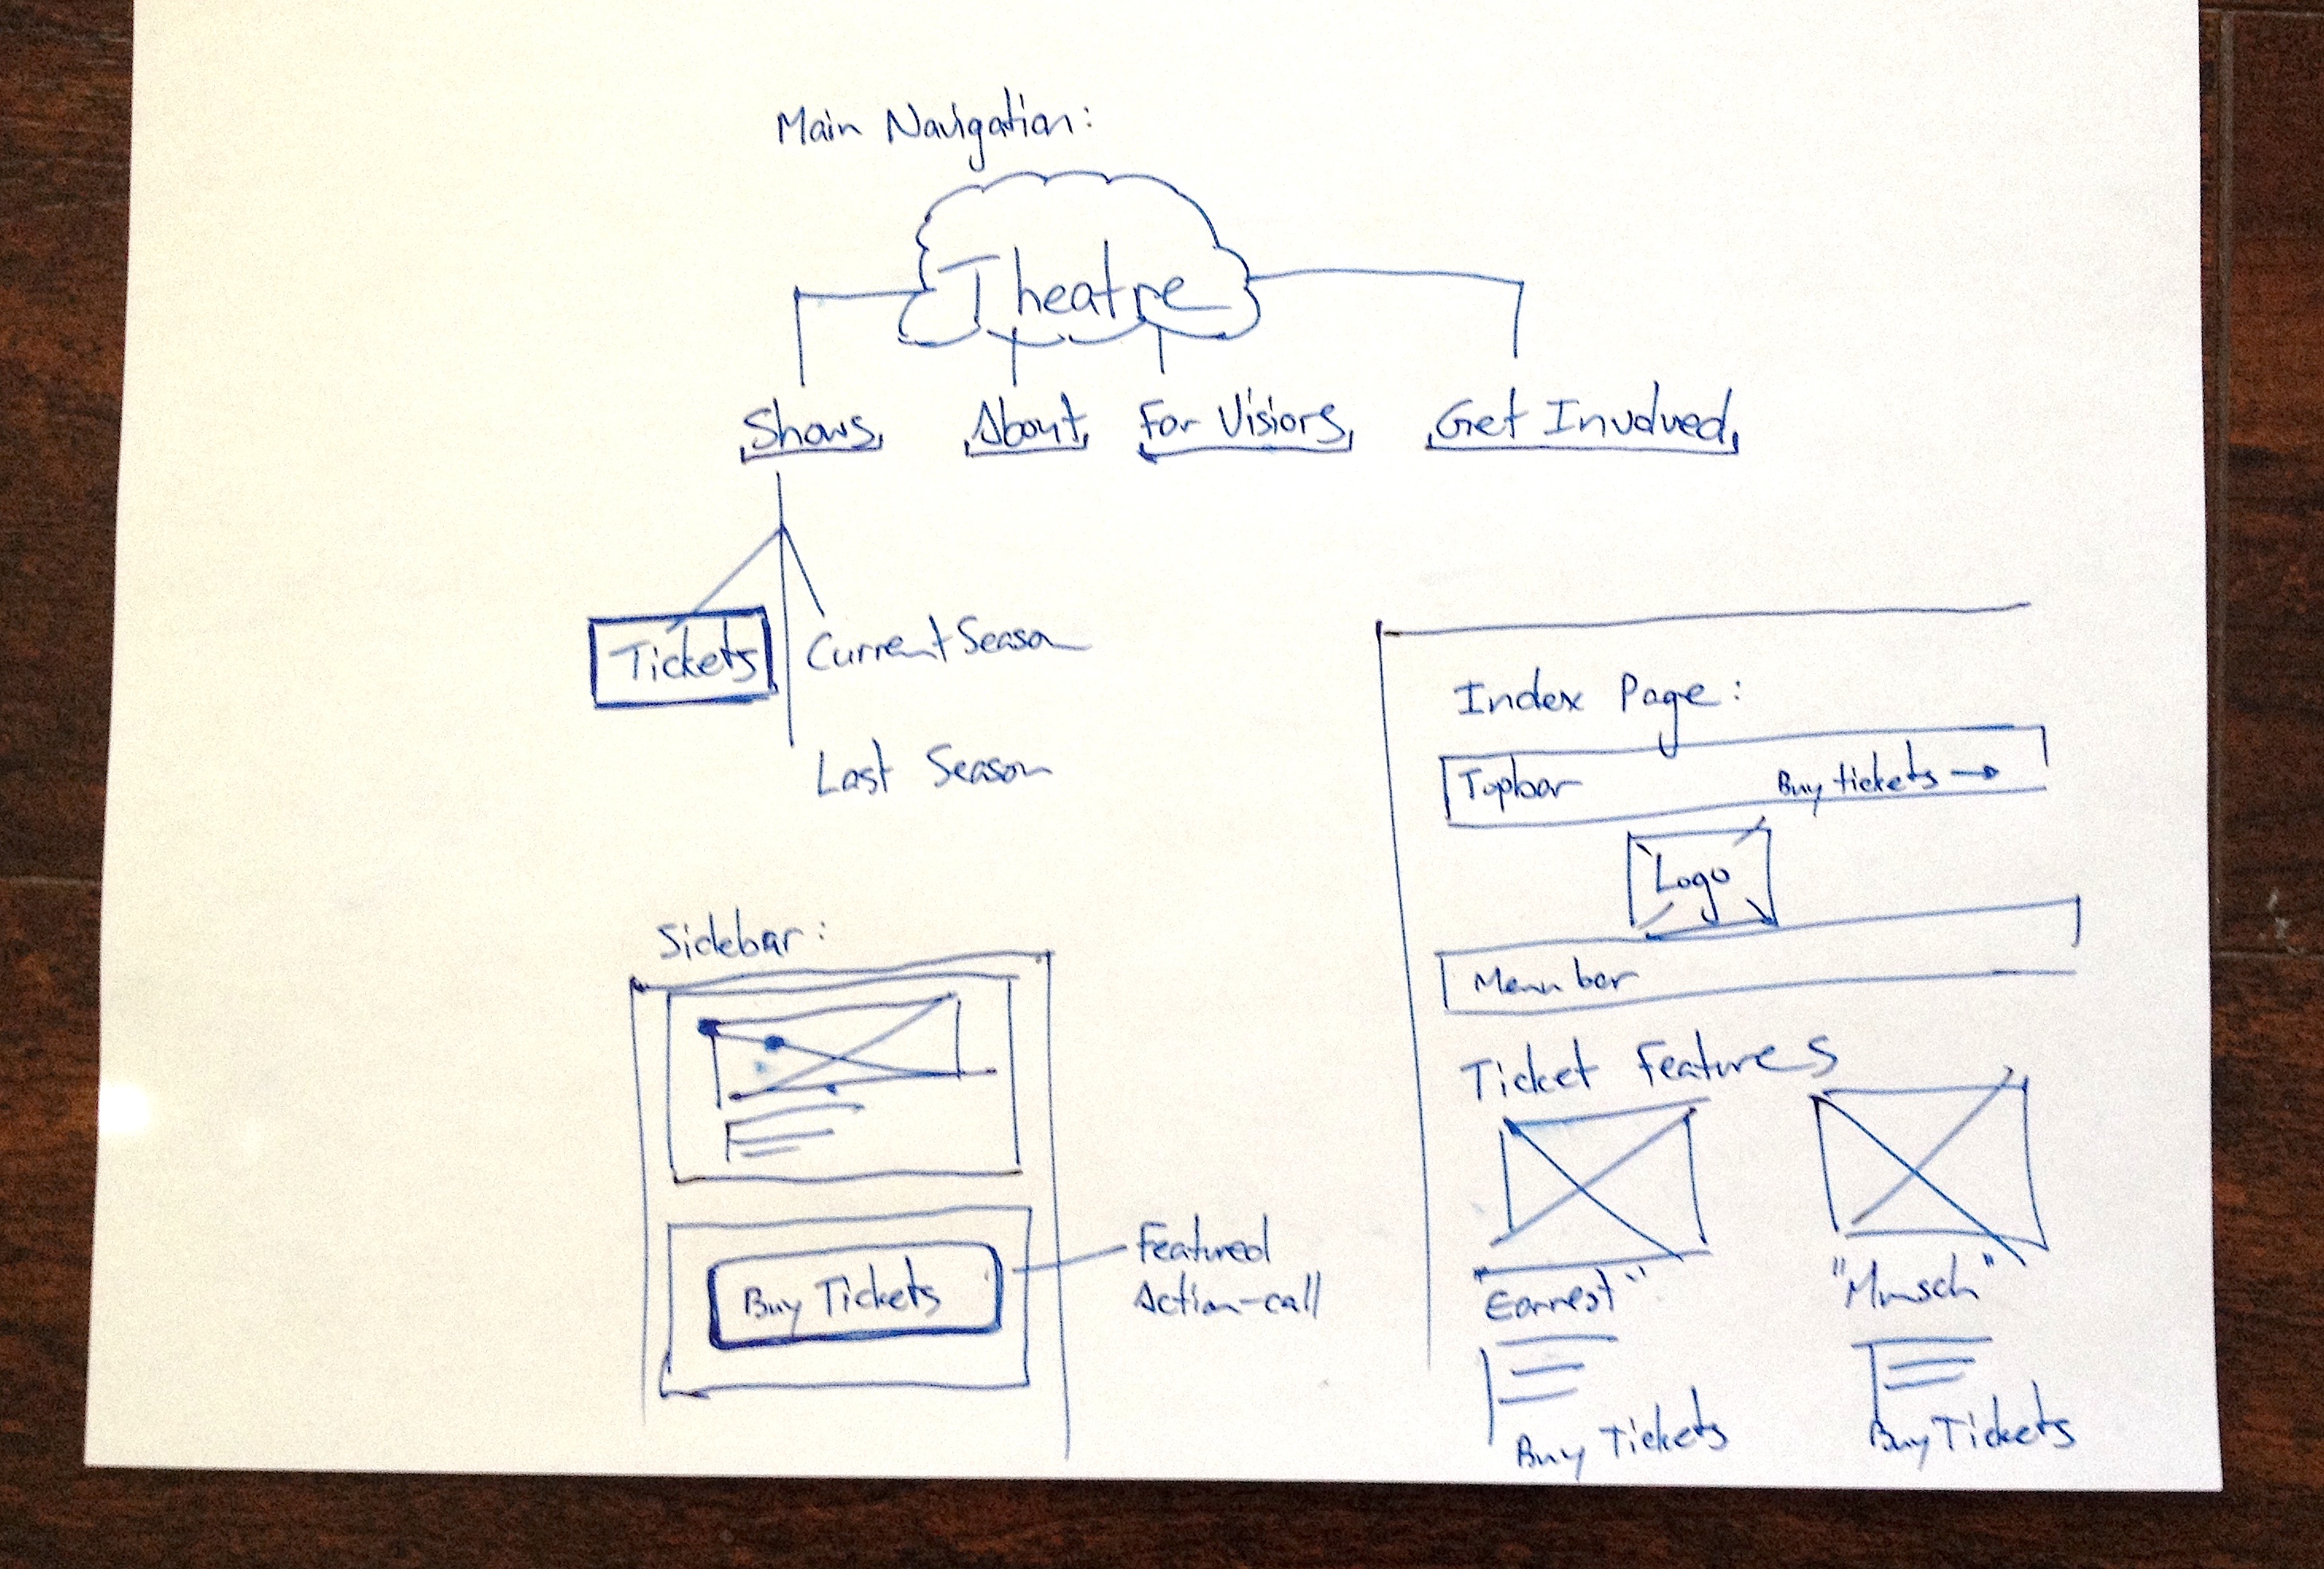 Main Navigation:
Theatre
Shows About For Visiors Get Involved
Tickets Current Season
Last Season
Sidebar:
Buy Tickets
Featured
Action-call
Index Page:
Topbar Buy tickets →
Logo
Menu bar
Ticket Features
Earnest" "Munsch"
Buy Tickets Buy Tickets